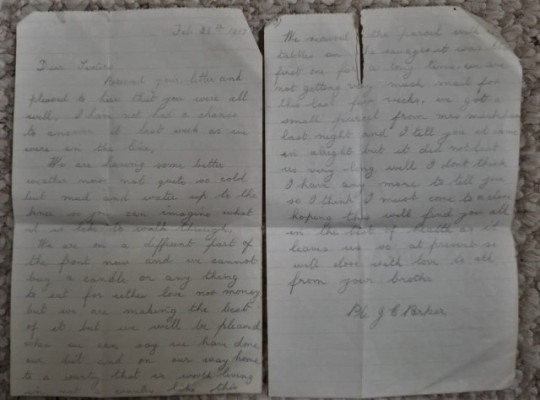 Feb 25th
Dear Sister
Received your letter and
pleased to hear that you were all
well. I have not had a chance
to answer it last week as we
were in the line.
We are having some better
weather now not quite so cold
but mud and water up to the
knees so you can imagine what
it is like to walk through.
We are on a different part of
the front now and we cannot
buy a candle or any thing
to eat for either love nor money
but we are making the best
of it but we will be pleased
when we can say we have done
our bit and on our way home
to a country that is worth living
in not a country like this
We received the parcel
tablets and the
first one for a long time, we are
not getting very much mail for
the last few weeks, we got a
small parcel from mrs
last night and I tell you it came
in alright but it did not last
us very long well I don't think
I have any more to tell you
so I think I must come to a close
hoping this will find you all
in the best of health as it
leaves us so at present so
will close with love to all
from your brother
Pte J E Parker